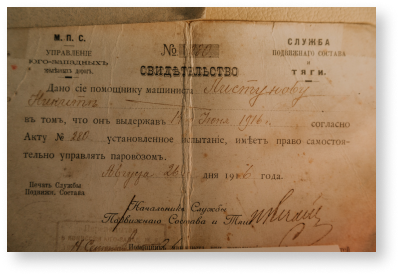 М. П. С.
УПРАВЛЕНІЕ
ЮГО-ЗАПАДНЫХЪ
№
СЛУЖБА
ПОДВИЖНАГО СОСТАВА
и
ТЯГИ.
СВИДѢТЕЛЬСТВО
Дано сіе помощнику машиниста Листунову
Никитѣ
въ томъ, что онъ выдержавъ Іюня 1916 согласно
Акту № 280 установленное испытаніе, имѣетъ право самостоя-
тельно управлять паровозомъ.
Августа дня 191 года.
Печать Службы
Подвижн. Состава.
Начальникъ Службы
Подвижнаго Состава и Тяги